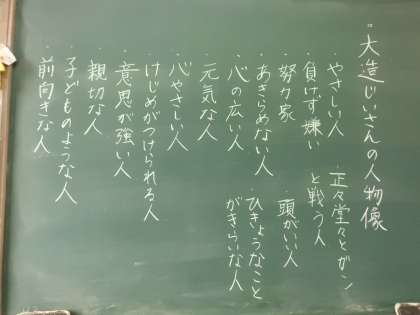 ・大造じいさんの人物像
・やさしい人
・負けず嫌い
・努力家
・あきらめない人
・心の広い人
・元気な人
・心やさしい人
・けじめがつけられる人
・意思が強い人
・親切な人
・子どものような人
・前向きな人
・正々堂々とガン
と戦う人
・頭がいい人
・ひきょうなこと
がきらいな人